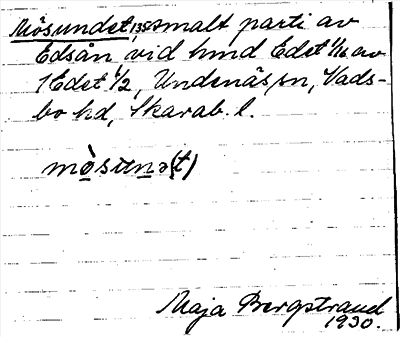 Mösundet, 135 smalt parti av
Edsån vid hmd Edet 1/16 av
1 Edet 1/2, Undenäs sn, Vads-
bo hd, Skarab. l.
mò̲su̲n̲ə(t)
Maja Bergstrand
1930.